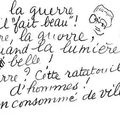 la guerre
il "fait beau" !
re, la guerre,
quand la lumière
belle !
rre ? Cette ratatouil
d'hommes !
n consommé de vill